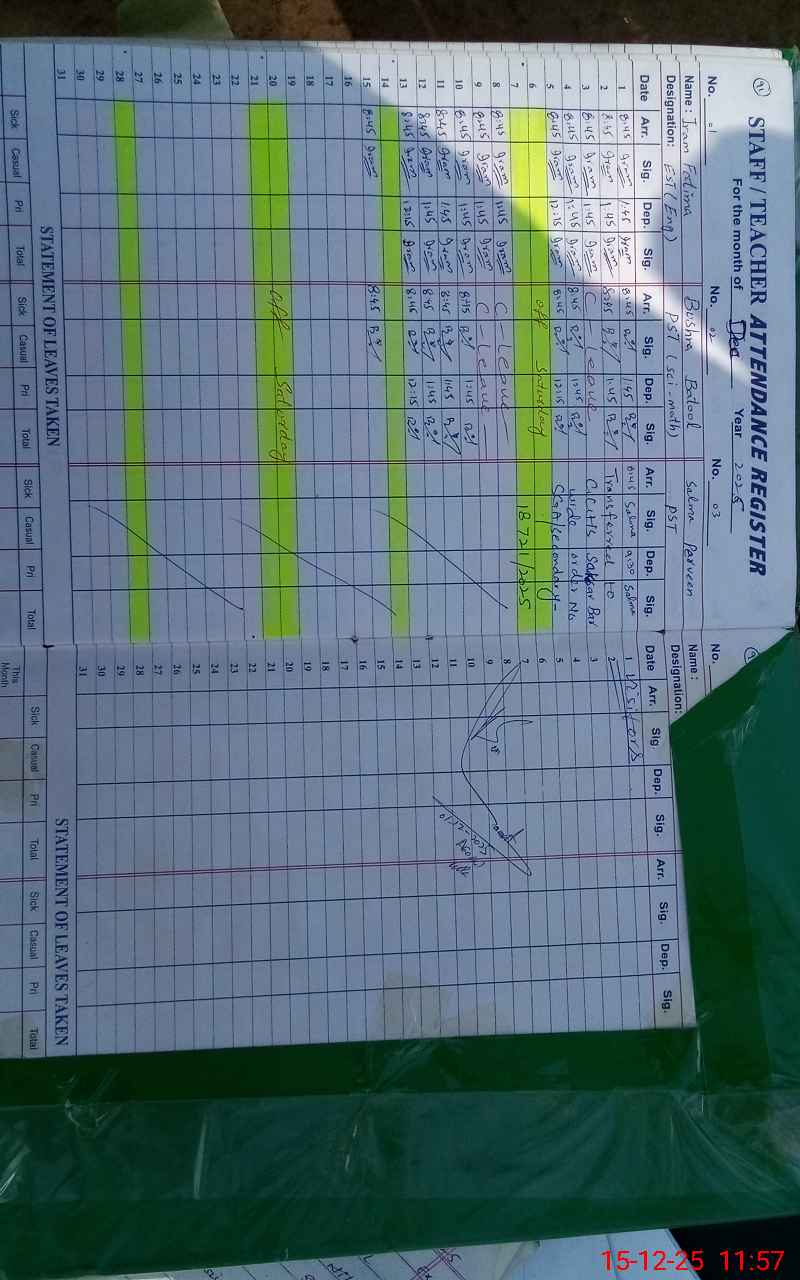 91
STAFF / TEACHER ATTENDANCE REGISTER
For the month of Dec Year 2025
No. 01 No. 02 No. 03
Name : Iram Fatima Bushra Batool Salma Parveen
Designation: EST (Eng) PST (sci-math) PST
Date Arr. Sig. Dep. Sig. Arr. Sig. Dep. Sig. Arr. Sig. Dep. Sig.
1 8:45 Iram 1:45 Iram 8:45 1:45 8:45 Salma 9:30 Salma
2 8:45 Iram 1:45 Iram 8:45 1:45 Transferred to
3 8:45 Iram 1:45 Iram C - leave
4 8:45 Iram 1:45 Iram 8:45 1:45 order No
5 8:45 Iram 12:15 Iram 8:45 12:15
6 off Saturday
7 18721/2025
8 8:45 Iram 1:45 Iram C - Leave
9 8:45 Iram 1:45 Iram C - Leave
10 8:45 Iram 1:45 Iram 8:45 1:45
11 8:45 Iram 1:45 Iram 8:45 1:45
12 8:45 Iram 1:45 Iram 8:45 1:45
13 8:45 Iram 12:15 Iram 8:45 12:15
14
15 8:45 Iram 8:45
16
17
18
19
20 off Saturday
21
22
23
24
25
26
27
28
29
30
31
STATEMENT OF LEAVES TAKEN
Sick Casual Pri Total Sick Casual Pri Total Sick Casual Pri Total
No.
Name :
Designation:
Date Arr. Sig. Dep. Sig. Arr. Sig. Dep. Sig.
1 Visitors
2
3
4
5
6
7
8
9
10
11
12
13
14
15
16
17
18
19
20
21
22
23
24
25
26
27
28
29
30
31
STATEMENT OF LEAVES TAKEN
This Month Sick Casual Pri Total Sick Casual Pri Total
15-12-25 11:57